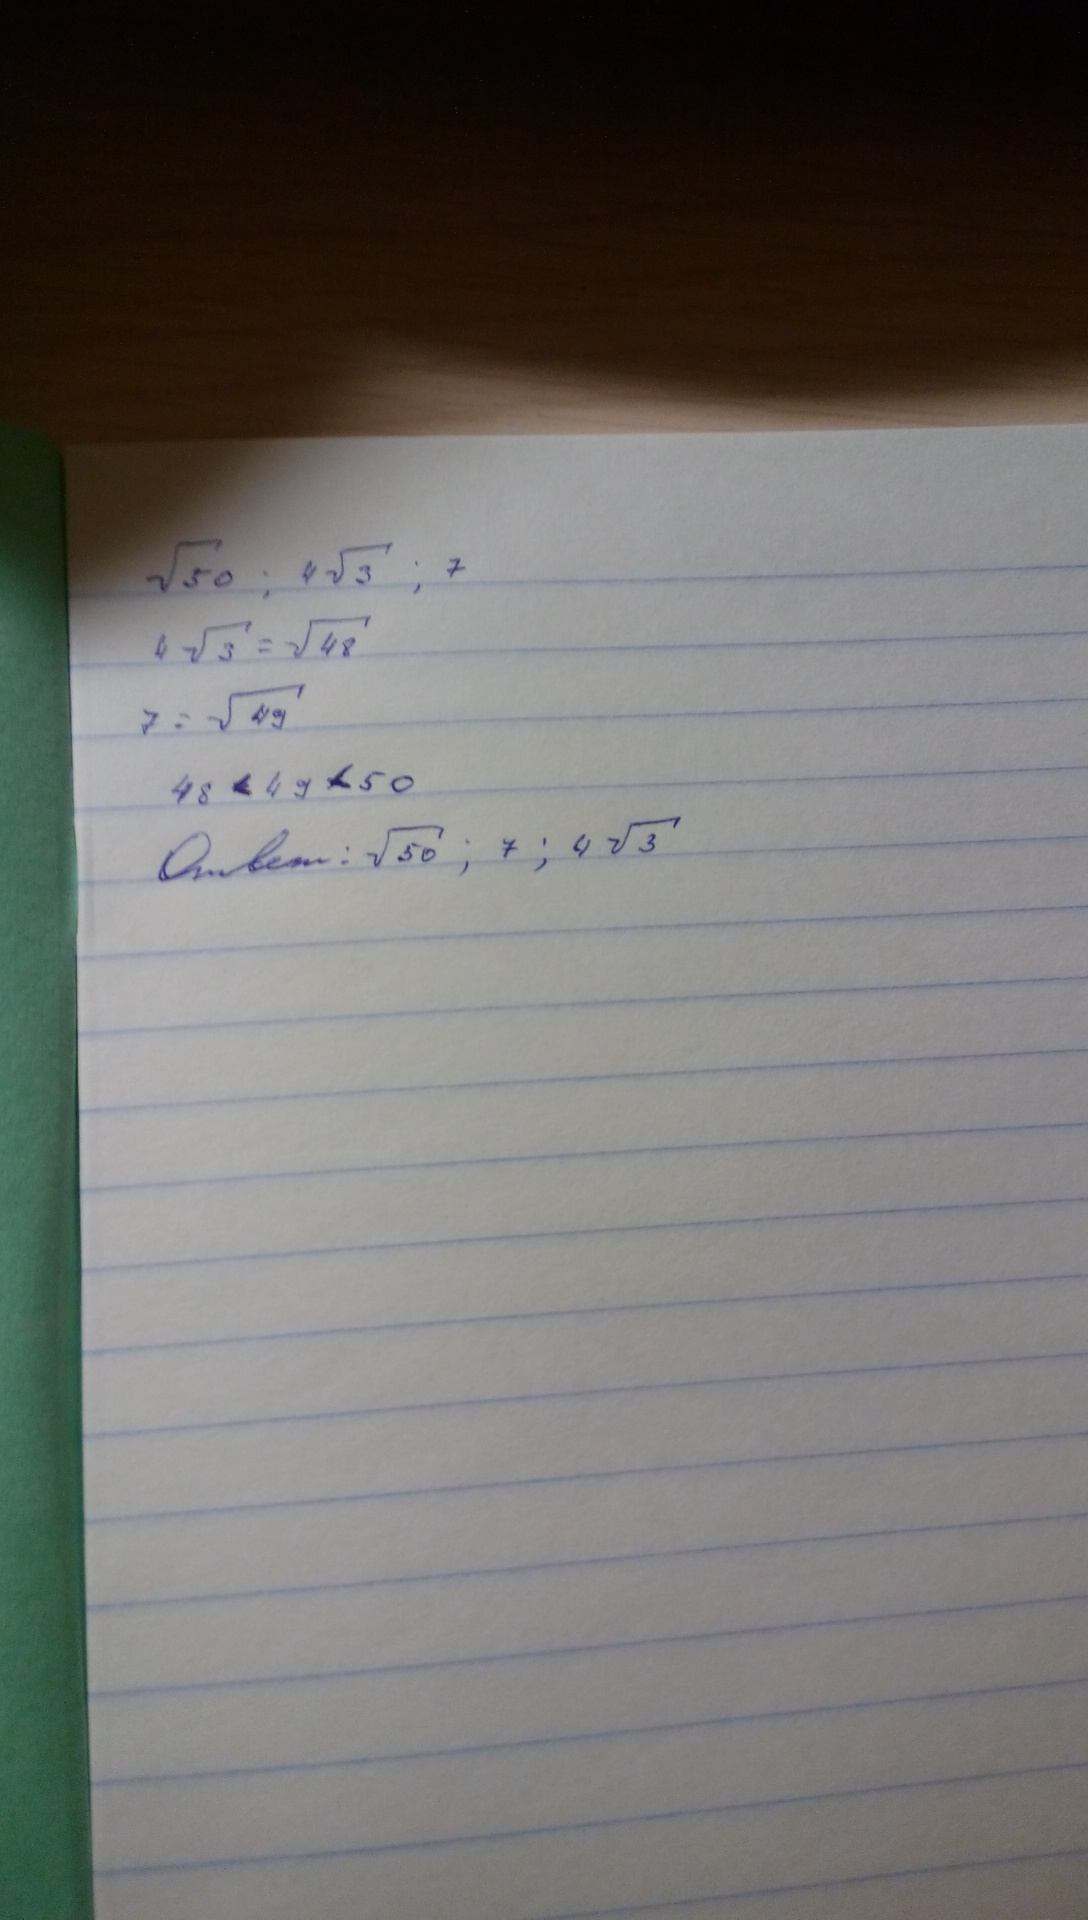 √50 ; 4√3 ; 7
4√3 = √48
7 = √49
48 < 49 < 50
Ответ: √50 ; 7 ; 4√3